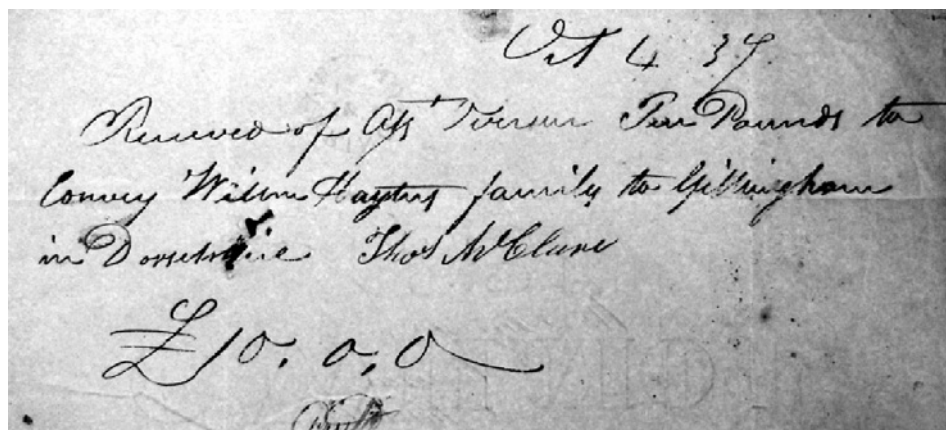 Oct 4 37
Received of Ap^t Iveson Ten Pounds to
Convey Willm Hayters family to Gillingham
in Dorsetshire Thos McClure
£10. 0, 0